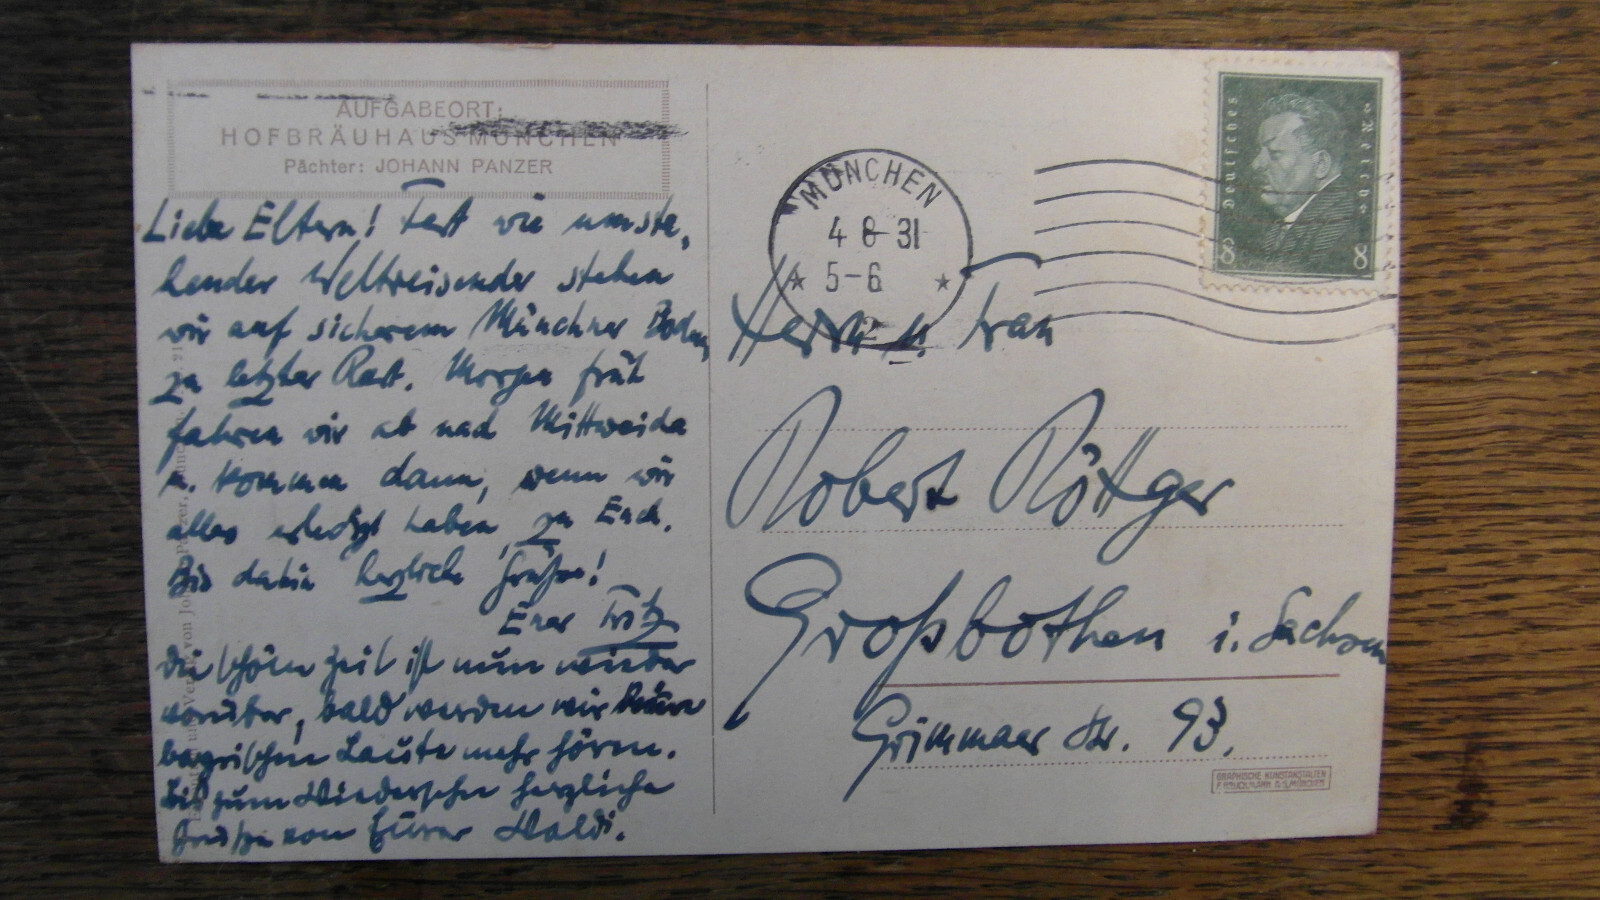 AUFGABEORT:
HOFBRÄUHAUS MÜNCHEN
Pächter: JOHANN PANZER
Liebe Eltern! Fest wie umste-
hender Weltreisender stehen
wir auf sicherem Münchner Boden
zu letzter Rast. Morgen früh
fahren wir ab nach Mittweida
u. kommen dann, wenn wir
alles erledigt haben, zu Euch.
Bis dahin herzliche Grüße!
Euer Fritz
Die schöne Zeit ist nun wieder
vorüber, bald werden wir keine
bayrischen Laute mehr hören.
Bis zum Wiedersehn herzliche
Grüße von Eurer Waldi.
MÜNCHEN
4 8 31
5-6
Deutsches Reich
8 8
Herrn u. Frau
Robert Röttger
Großbothen i. Sachsen
Grimmaer Str. 93.
GRAPHISCHE KUNSTANSTALTEN
F. BRUCKMANN A.G. MÜNCHEN